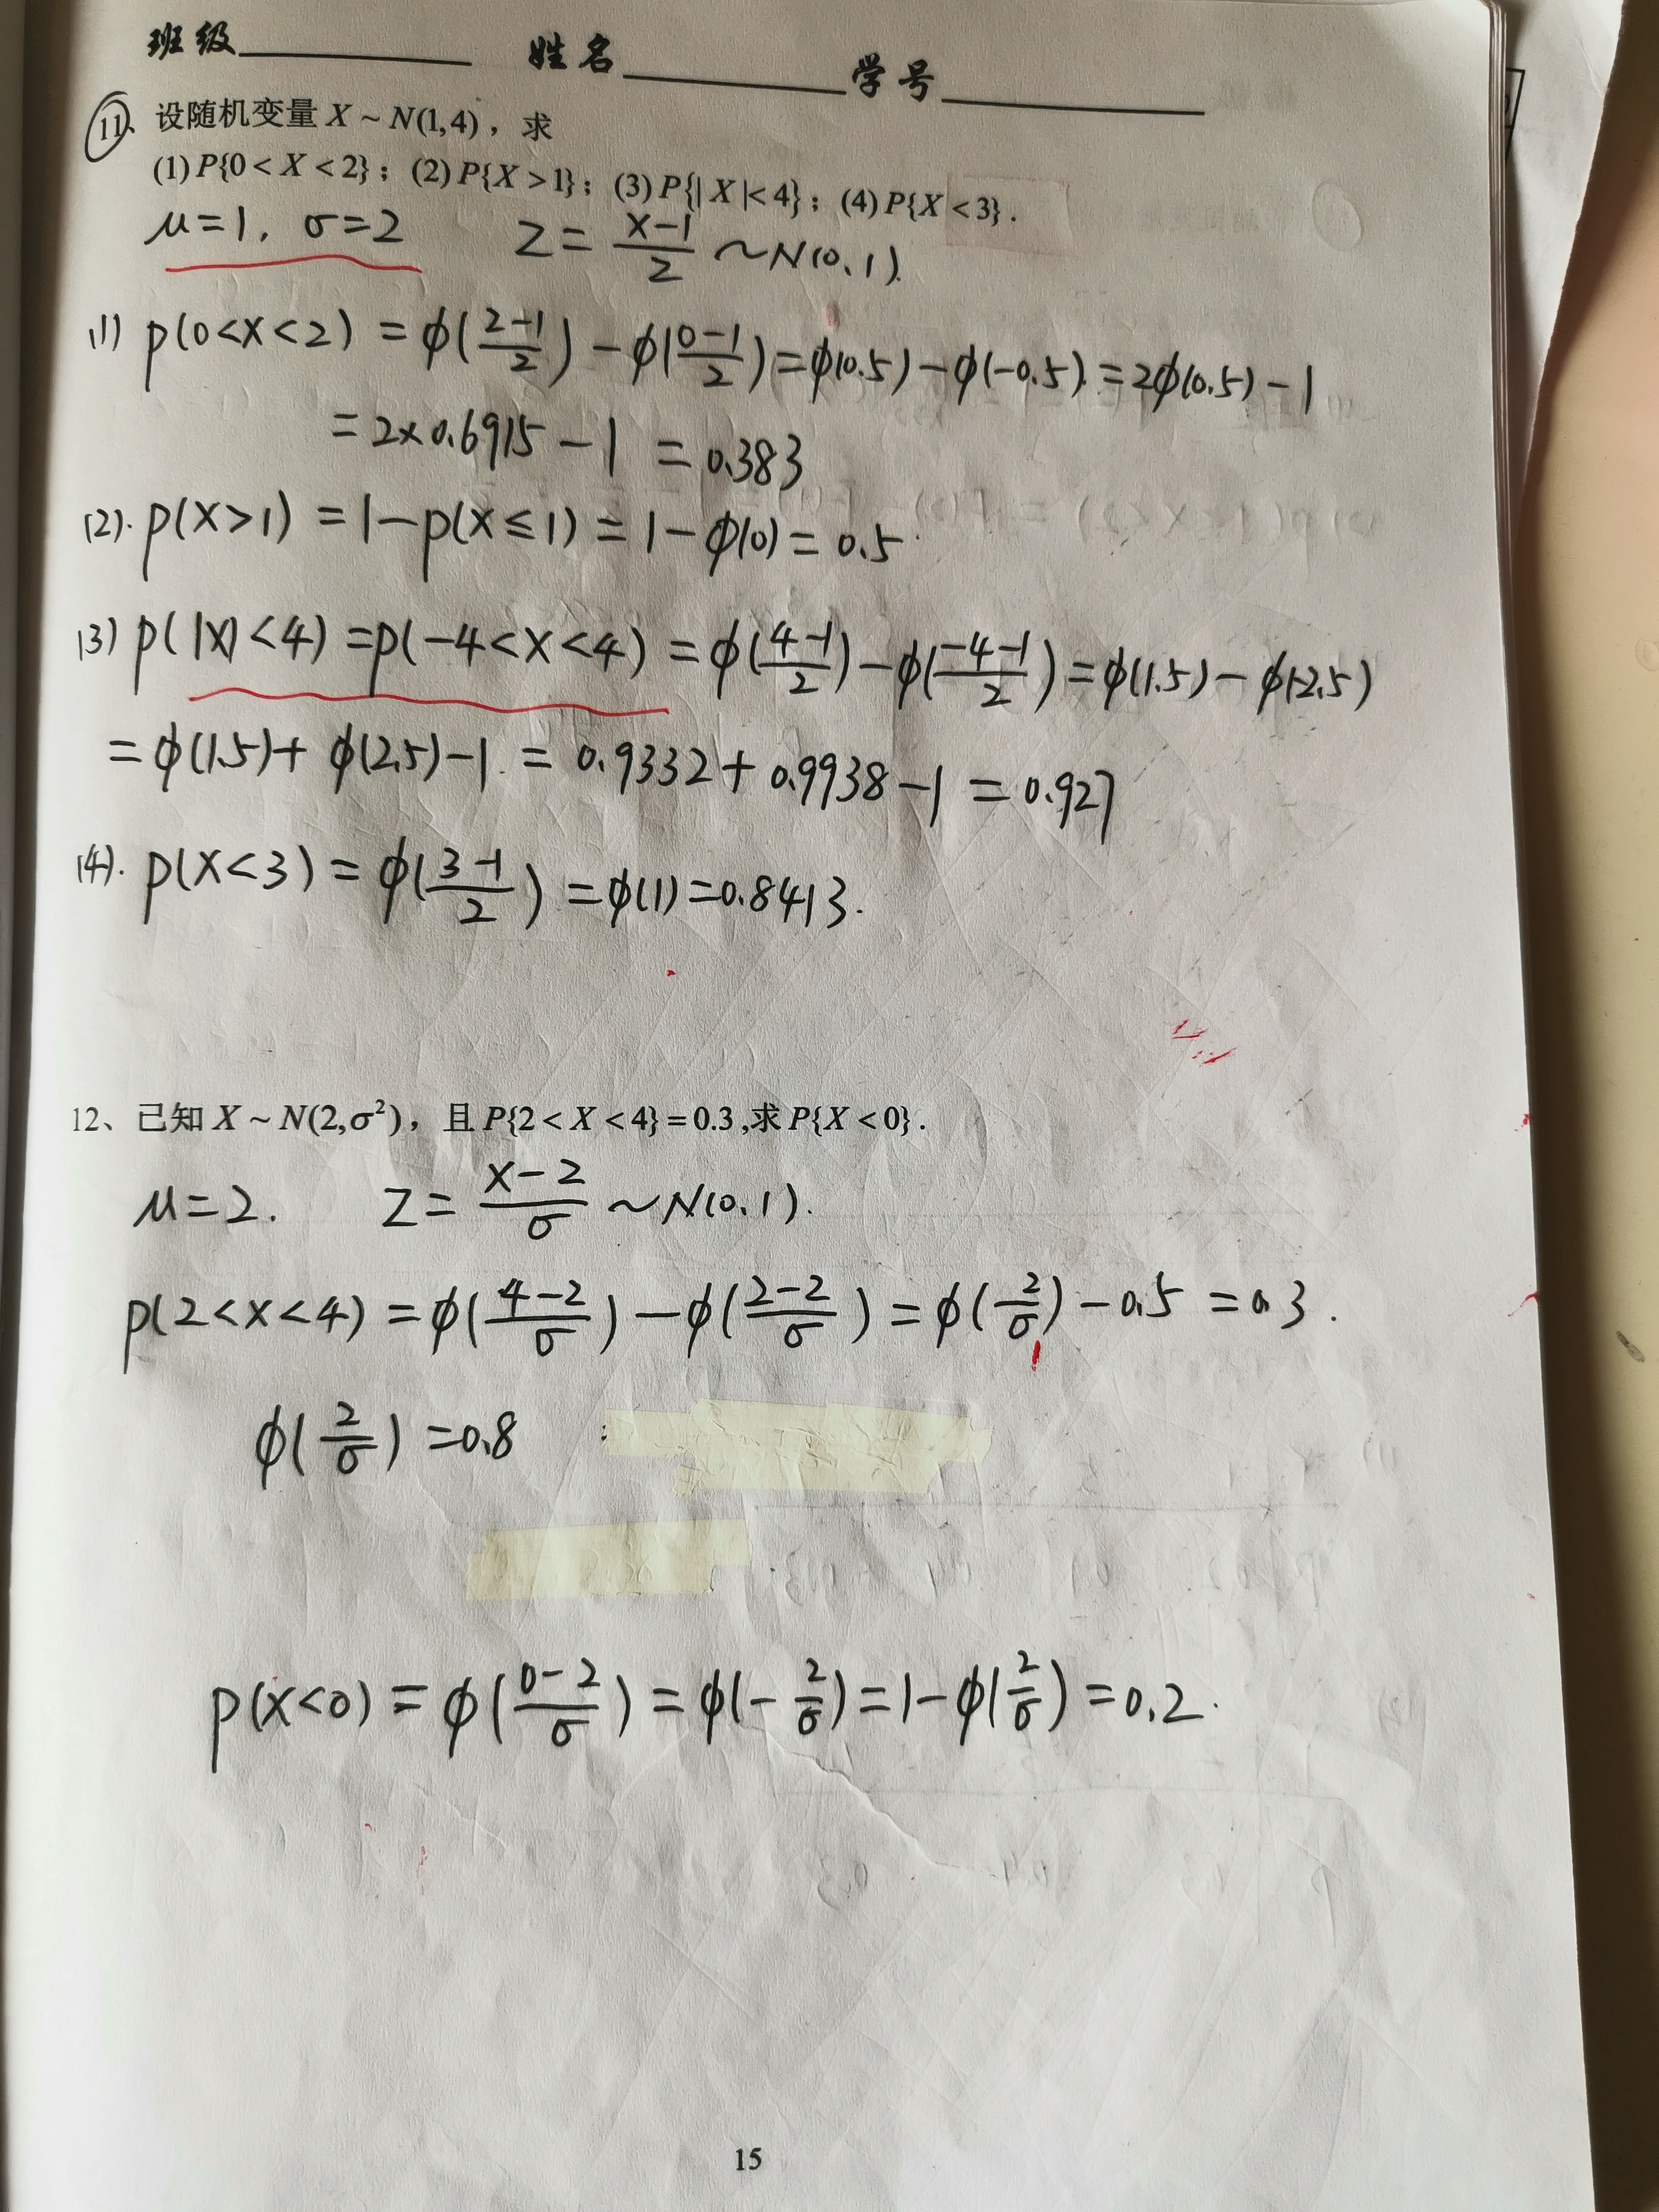 班级 姓名 学号
11、设随机变量 X ~ N(1,4)，求
(1) P{0 < X < 2}；(2) P{X > 1}；(3) P{| X |< 4}；(4) P{X < 3}.
μ=1, σ=2 Z = (X-1)/2 ~ N(0,1).
(1) P(0<X<2) = φ((2-1)/2) - φ((0-1)/2) = φ(0.5) - φ(-0.5) = 2φ(0.5) - 1
= 2×0.6915 - 1 = 0.383
(2). P(X>1) = 1 - P(X≤1) = 1 - φ(0) = 0.5
(3) P(|X|<4) = P(-4<X<4) = φ((4-1)/2) - φ((-4-1)/2) = φ(1.5) - φ(-2.5)
= φ(1.5) + φ(2.5) - 1 = 0.9332 + 0.9938 - 1 = 0.927
(4). P(X<3) = φ((3-1)/2) = φ(1) = 0.8413.
12、已知 X ~ N(2,σ²)，且 P{2 < X < 4} = 0.3 ,求 P{X < 0}.
μ=2. Z = (X-2)/σ ~ N(0,1).
P(2<X<4) = φ((4-2)/σ) - φ((2-2)/σ) = φ(2/σ) - 0.5 = 0.3.
φ(2/σ) = 0.8
P(X<0) = φ((0-2)/σ) = φ(-2/σ) = 1 - φ(2/σ) = 0.2.
15